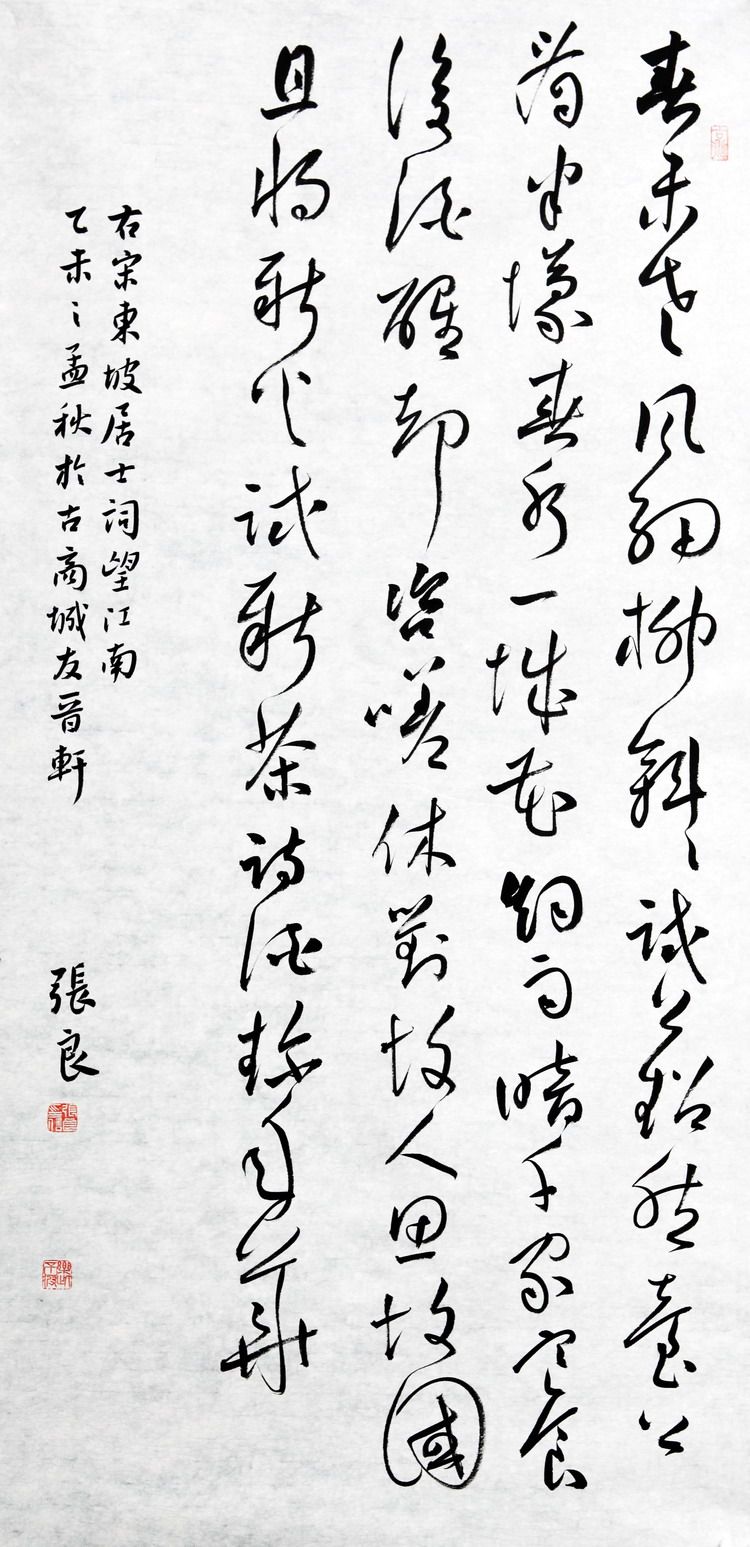 春未老風細柳斜斜試上超然臺上
看半壕春水一城花煙雨暗千家寒食
後酒醒却咨嗟休對故人思故國
且將新火試新茶詩酒趁年華
右宋東坡居士詞望江南
乙未之孟秋於古商城友晋軒
張良